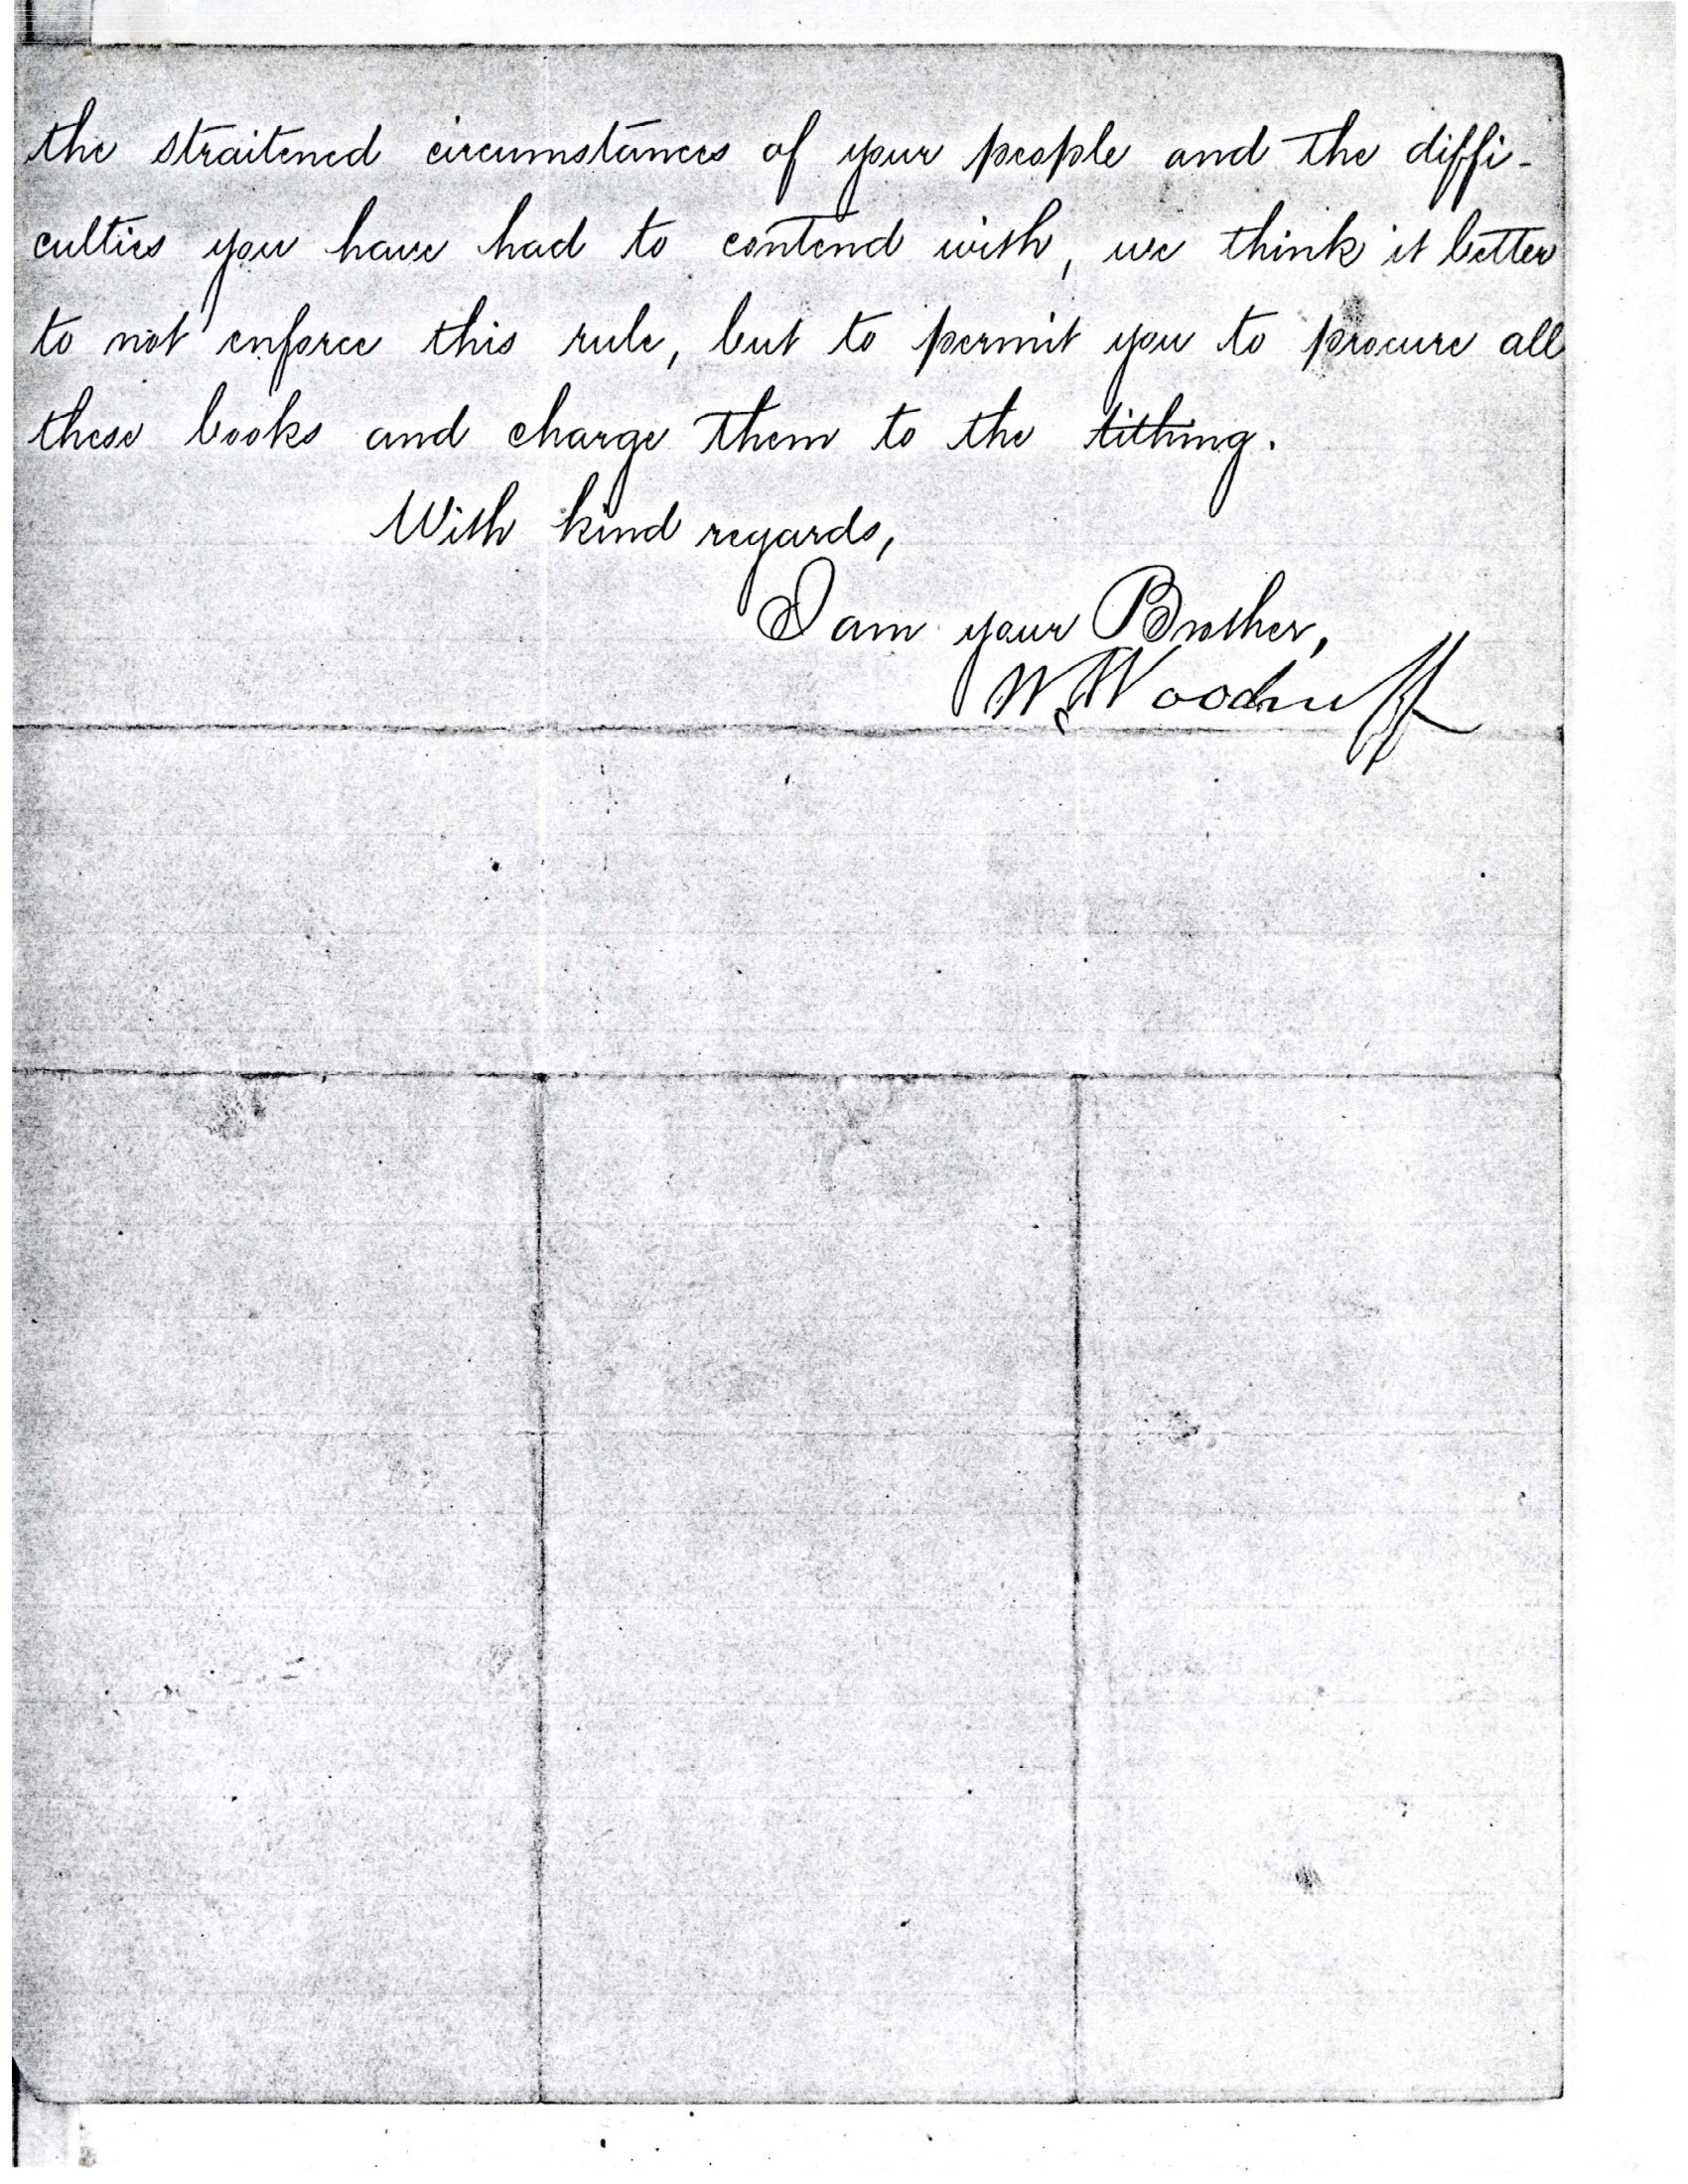 the straitened circumstances of your people and the diffi-
culties you have had to contend with, we think it better
to not enforce this rule, but to permit you to procure all
these books and charge them to the tithing.
With kind regards,
I am your Brother,
W. Woodruff